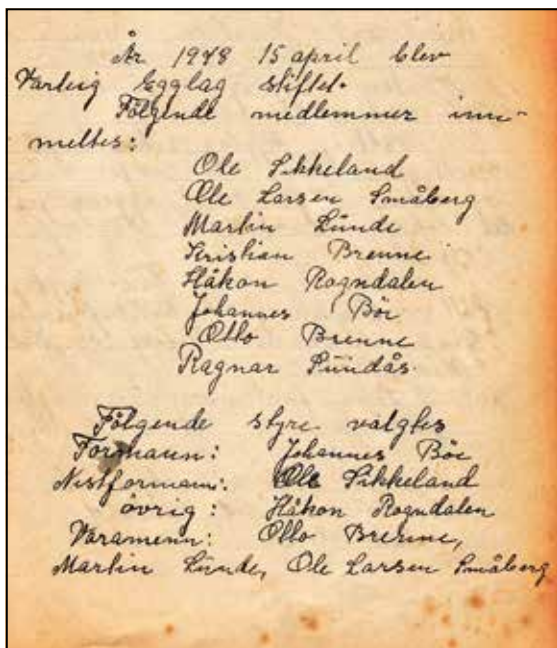 År 1928 15 april blev
Varteig Egglag stiftet.
Følgende medlemmer inn-
meltes:
Ole Sikkeland
Ole Larsen Småberg
Martin Lunde
Kristian Brenne
Håkon Rogndalen
Johannes Böe
Otto Brenne
Ragnar Sundås.
Følgende styre valgtes
Formann: Johannes Böe
Nestformann: Ole Sikkeland
övrig: Håkon Rogndalen
Varamenn: Otto Brenne,
Martin Lunde, Ole Larsen Småberg